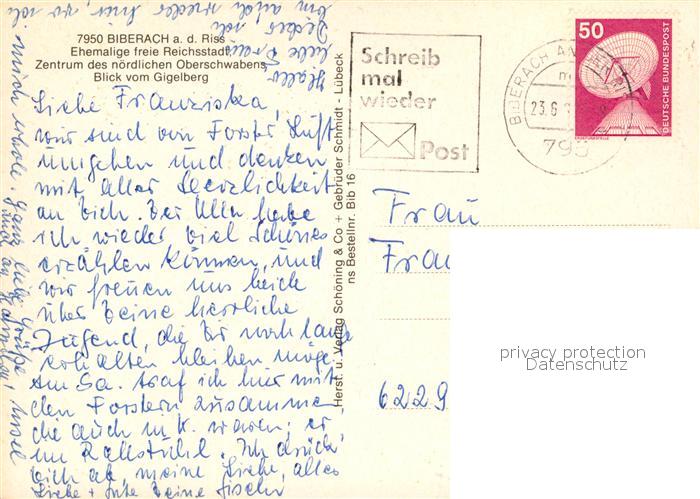 7950 BIBERACH a. d. Riss
Ehemalige freie Reichsstadt
Zentrum des nördlichen Oberschwabens
Blick vom Gigelberg
Liebe Franziska,
wir sind von Forster Luft
umgeben und denken
mit aller Herzlichkeit
an Dich. Bei Ullm habe
ich wieder viel Schönes
erzählen können, und
wir freuen uns beide
über Deine herrliche
Jugend, die Dir noch lange
erhalten bleiben möge.
Am Sa. traf ich hier mit
den Forstern zusammen
die auch in K. waren; er
im Rollstuhl. Ich drück'
Dich ab, meine Liebe, alles
Liebe + Gute Deine
mich erhole. Ganz liebe Grüße
Hallo
liebe Frau
bin auch wieder hier, wo ich
Herst. u. Verlag Schöning & Co + Gebrüder Schmidt - Lübeck
ns Bestellnr. Bib 16
Schreib
mal
wieder
Post
BIBERACH AN DER RISS
23.6.
795
50
DEUTSCHE BUNDESPOST
Frau
Fra
6229
privacy protection
Datenschutz